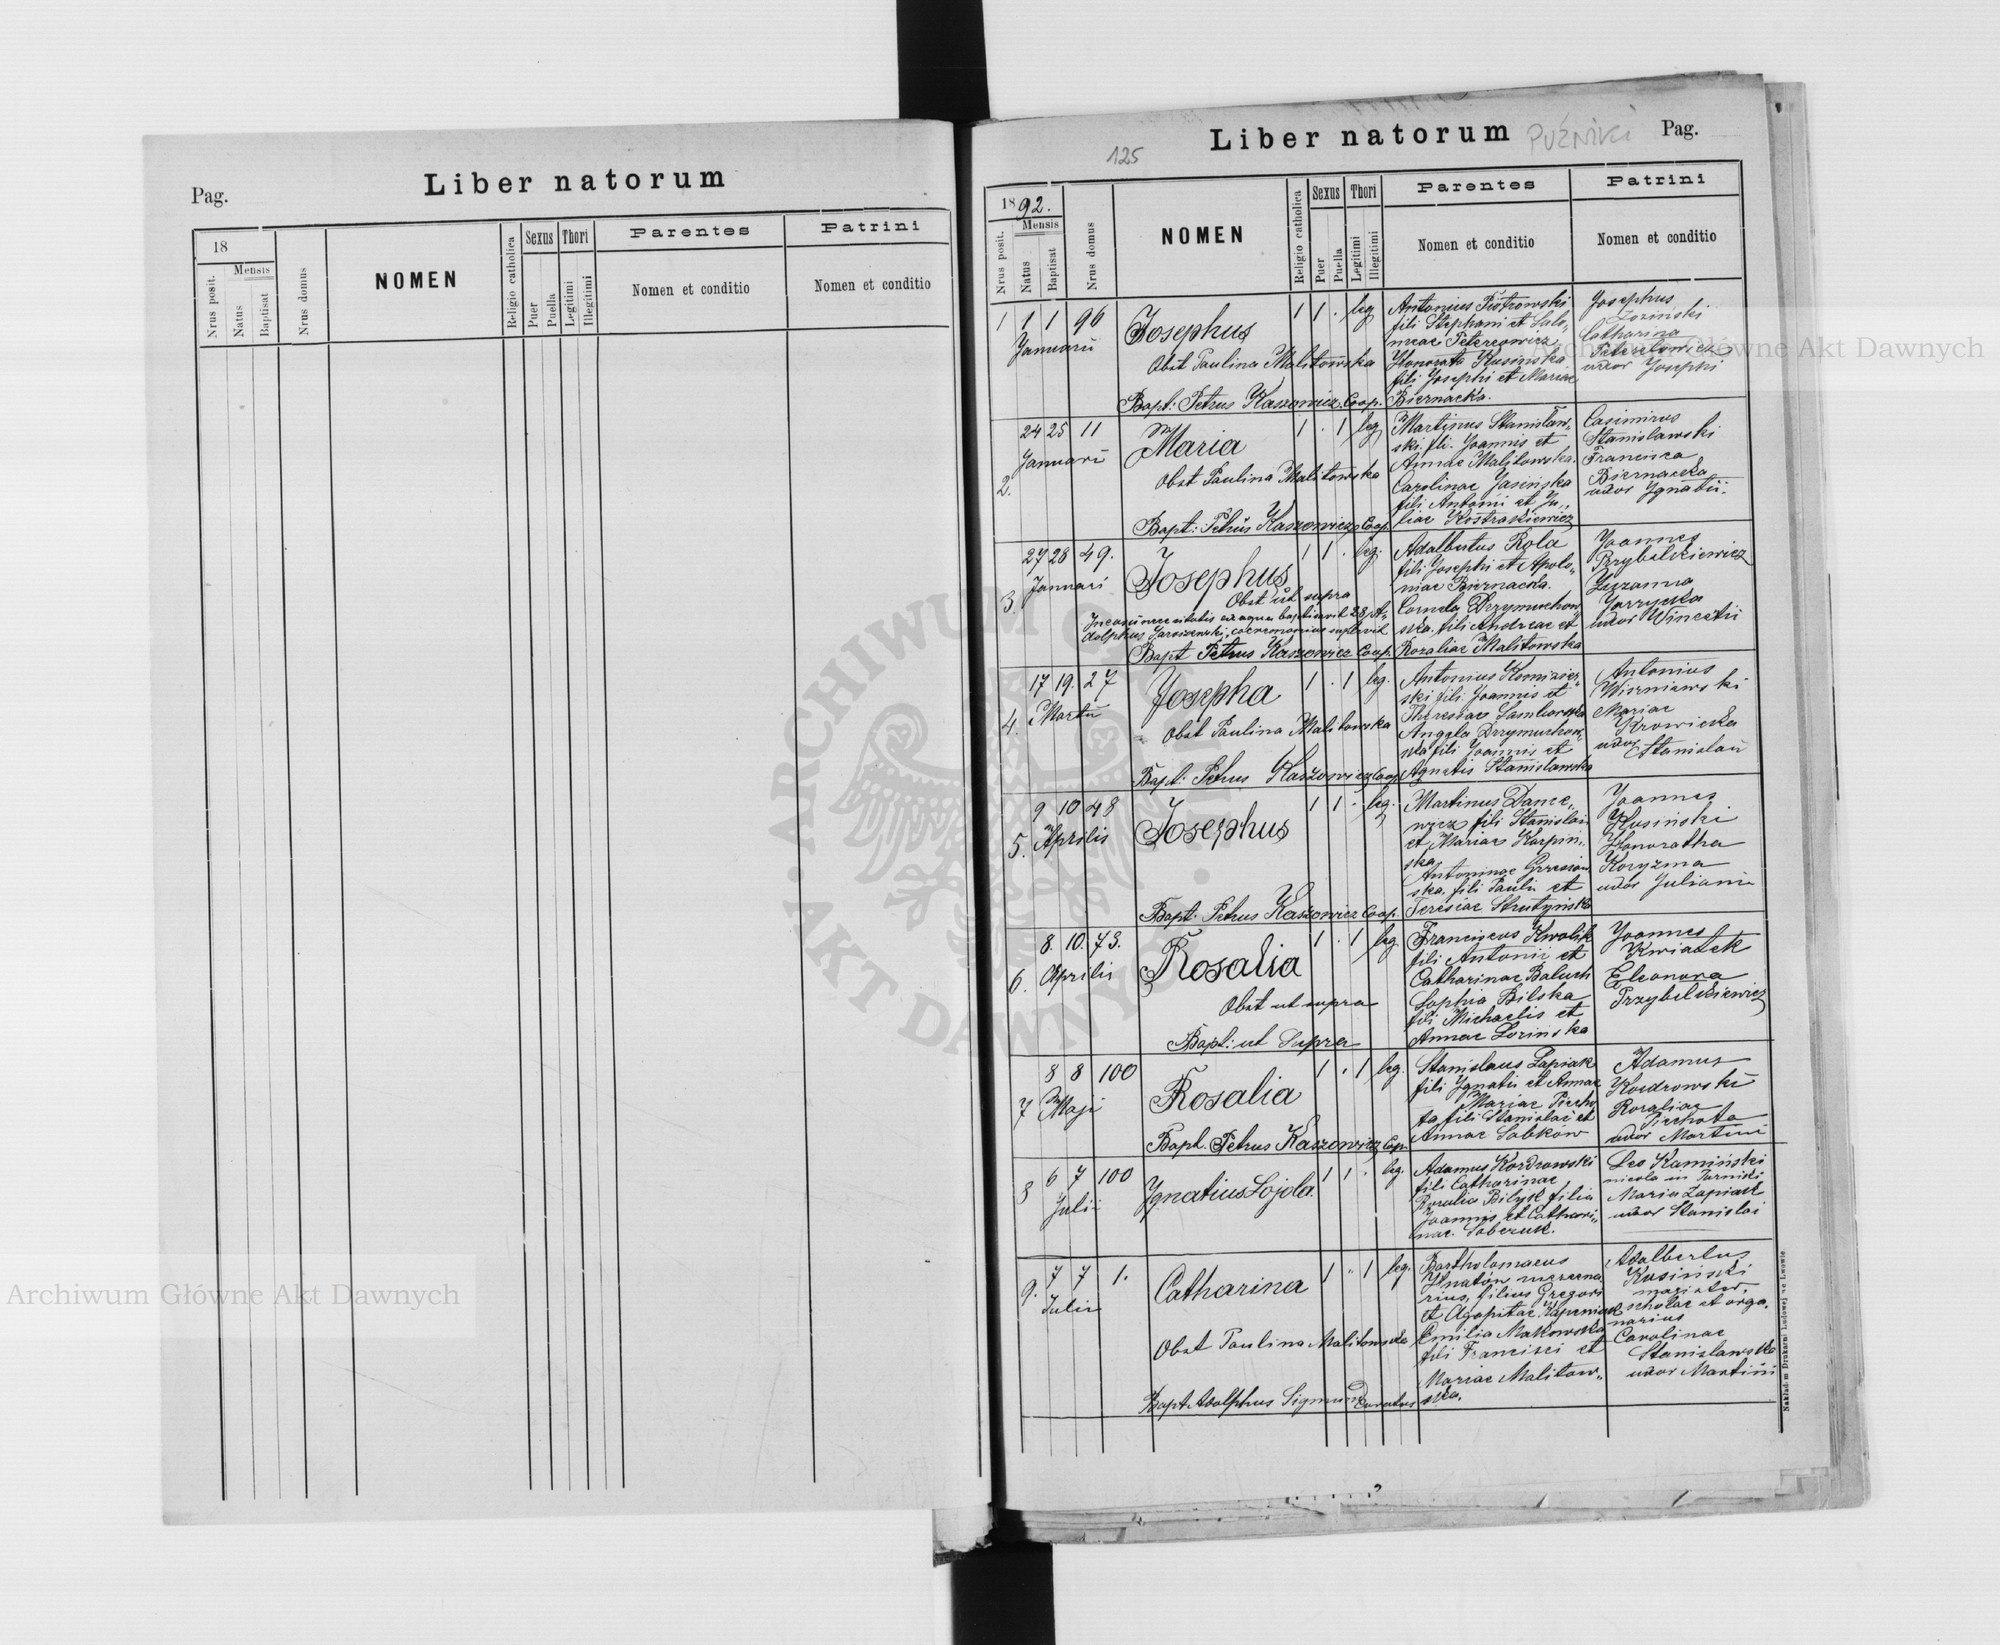 Pag.
Liber natorum
18
Mensis
Nrus posit.
Natus
Baptisat
Nrus domus
NOMEN
Religio catholica
Sexus
Puer
Puella
Thori
Legitimi
Illegitimi
Parentes
Nomen et conditio
Patrini
Nomen et conditio
125
Liber natorum
PUŹNIKI
Pag.
1892.
Mensis
Nrus posit.
Natus
Baptisat
Nrus domus
NOMEN
Religio catholica
Sexus
Puer
Puella
Thori
Legitimi
Illegitimi
Parentes
Nomen et conditio
Patrini
Nomen et conditio
1 1 1 96
Januarii
Josephus
Obst Paulina Malitowska
Bapt: Petrus Kaszowicz Coop.
1 1 . leg
Antonius Piotrowski
fili Stephani et Salo,,
meae Petrecowicz
Honorata Kusinska
fili Josephi et Mariae
Biernacka.
Josephus
Łozinski
Catharina
uxor Josephi
2. 24 25 11
Januarii
Maria
Obst Paulina Malitowska
Bapt: Petrus Kaszowicz Coop.
1 . 1 leg
Martinus Stanislaw,,
ski fili. Joannis et
Annae Malitowska.
Carolinae Jasinska
fili Antonii et Ju,,
liae Kostraskiewicz
Casimirus
Stanislawski
Francisca
Biernacka
uxor Ignatii.
3 27 28 49.
Januari
Josephus
Obst ut supra
In casu necessitatis ex aqua baptisavit 28 A,,
dolphus Jarossewski, caeremonias suplevit
Bapt Petrus Kaszowicz Coop.
1 1 . leg.
Adalbertus Rola
fili Josephi et Apolo,,
niae Biernacka.
Cornela Drzymuchow
ska, fili Andreae et
Rozaliae Malitowska
Joannes
Przybelkiewicz
Zuzanna
Jarzycka
uxor Wincetii
4. 17 19. 27
Martii
Josepha
Obst Paulina Malitowska
Bapt: Petrus Kaszowicz Coop
1 . 1 leg.
Antonius
ski fili Joannis et
Theresiae Samborska
Angela Drzymuchow,,
ska fili Joannis et
Agnetis Stanislawska
Antonius
Wiszniewski
Mariae
Krowicka
uxor
Stanislaii
5. 9 10 48
Aprilis
Josephus
Bapt: Petrus Kaszowicz Coop.
1 1 . leg.
Martinus Dance,,
wicz fili Stanislai
et Mariae Karpin,,
ska
Antoninae
ska, fili Pauli et
Teresiae Strutynska
Joannes
Kusiński
Honoratha
Koryzma
uxor Juliani
6. 8. 10. 73.
Aprilis
Rosalia
Obst ut supra
Bapt: ut Supra
1 . 1 leg
Franciscus Kwolik
fili Antonii et
Catharinae Baluch
Sophia Bilska
fili Michaelis et
Annae Lorinska
Joannes
Kwiatek
Eleonora
Przybelkiewicz
7 8 8 100
Maji
Rosalia
Bapt. Petrus Kaszowicz Coop.
1 . 1 leg.
Stanislaus Łapiak
fili Ignatii et Annae
Mariae Piecho
ta fili Stanislai et
Annae Sobków
Adamus
Kozdrowski
Rozaliae
Piechota
uxor Martini
8 6 7 100
Julii
Ignatius Lojola.
1 1 . leg.
Adamus Kozdrowski
fili Catharinae
Rozalia Bilyk filia
Joannis et Cathari,,
nae. Soberuk.
Leo Kamiński
Maria Łapiak
uxor Stanislai
9. 7 7 1.
Julii
Catharina
Obst Paulina Malitowska
Bapt Adolphus Sigmund Curatus
1 . 1 leg.
Bartholomaeus
Hnatów mercena
rius, filius Gregori
et Agapitae
Emilia Makowska
fili Francisci et
Mariae Malitow,,
ska.
Adalbertus
Kusiński
magister,
scholae et orga,
narius
Carolinae
Stanislawska
uxor Martini
Nakład-m Drukarni Ludowej we Lwowie.
Archiwum Główne Akt Dawnych
Archiwum Główne Akt Dawnych
ARCHIWUM GŁÓWNE
AKT DAWNYCH